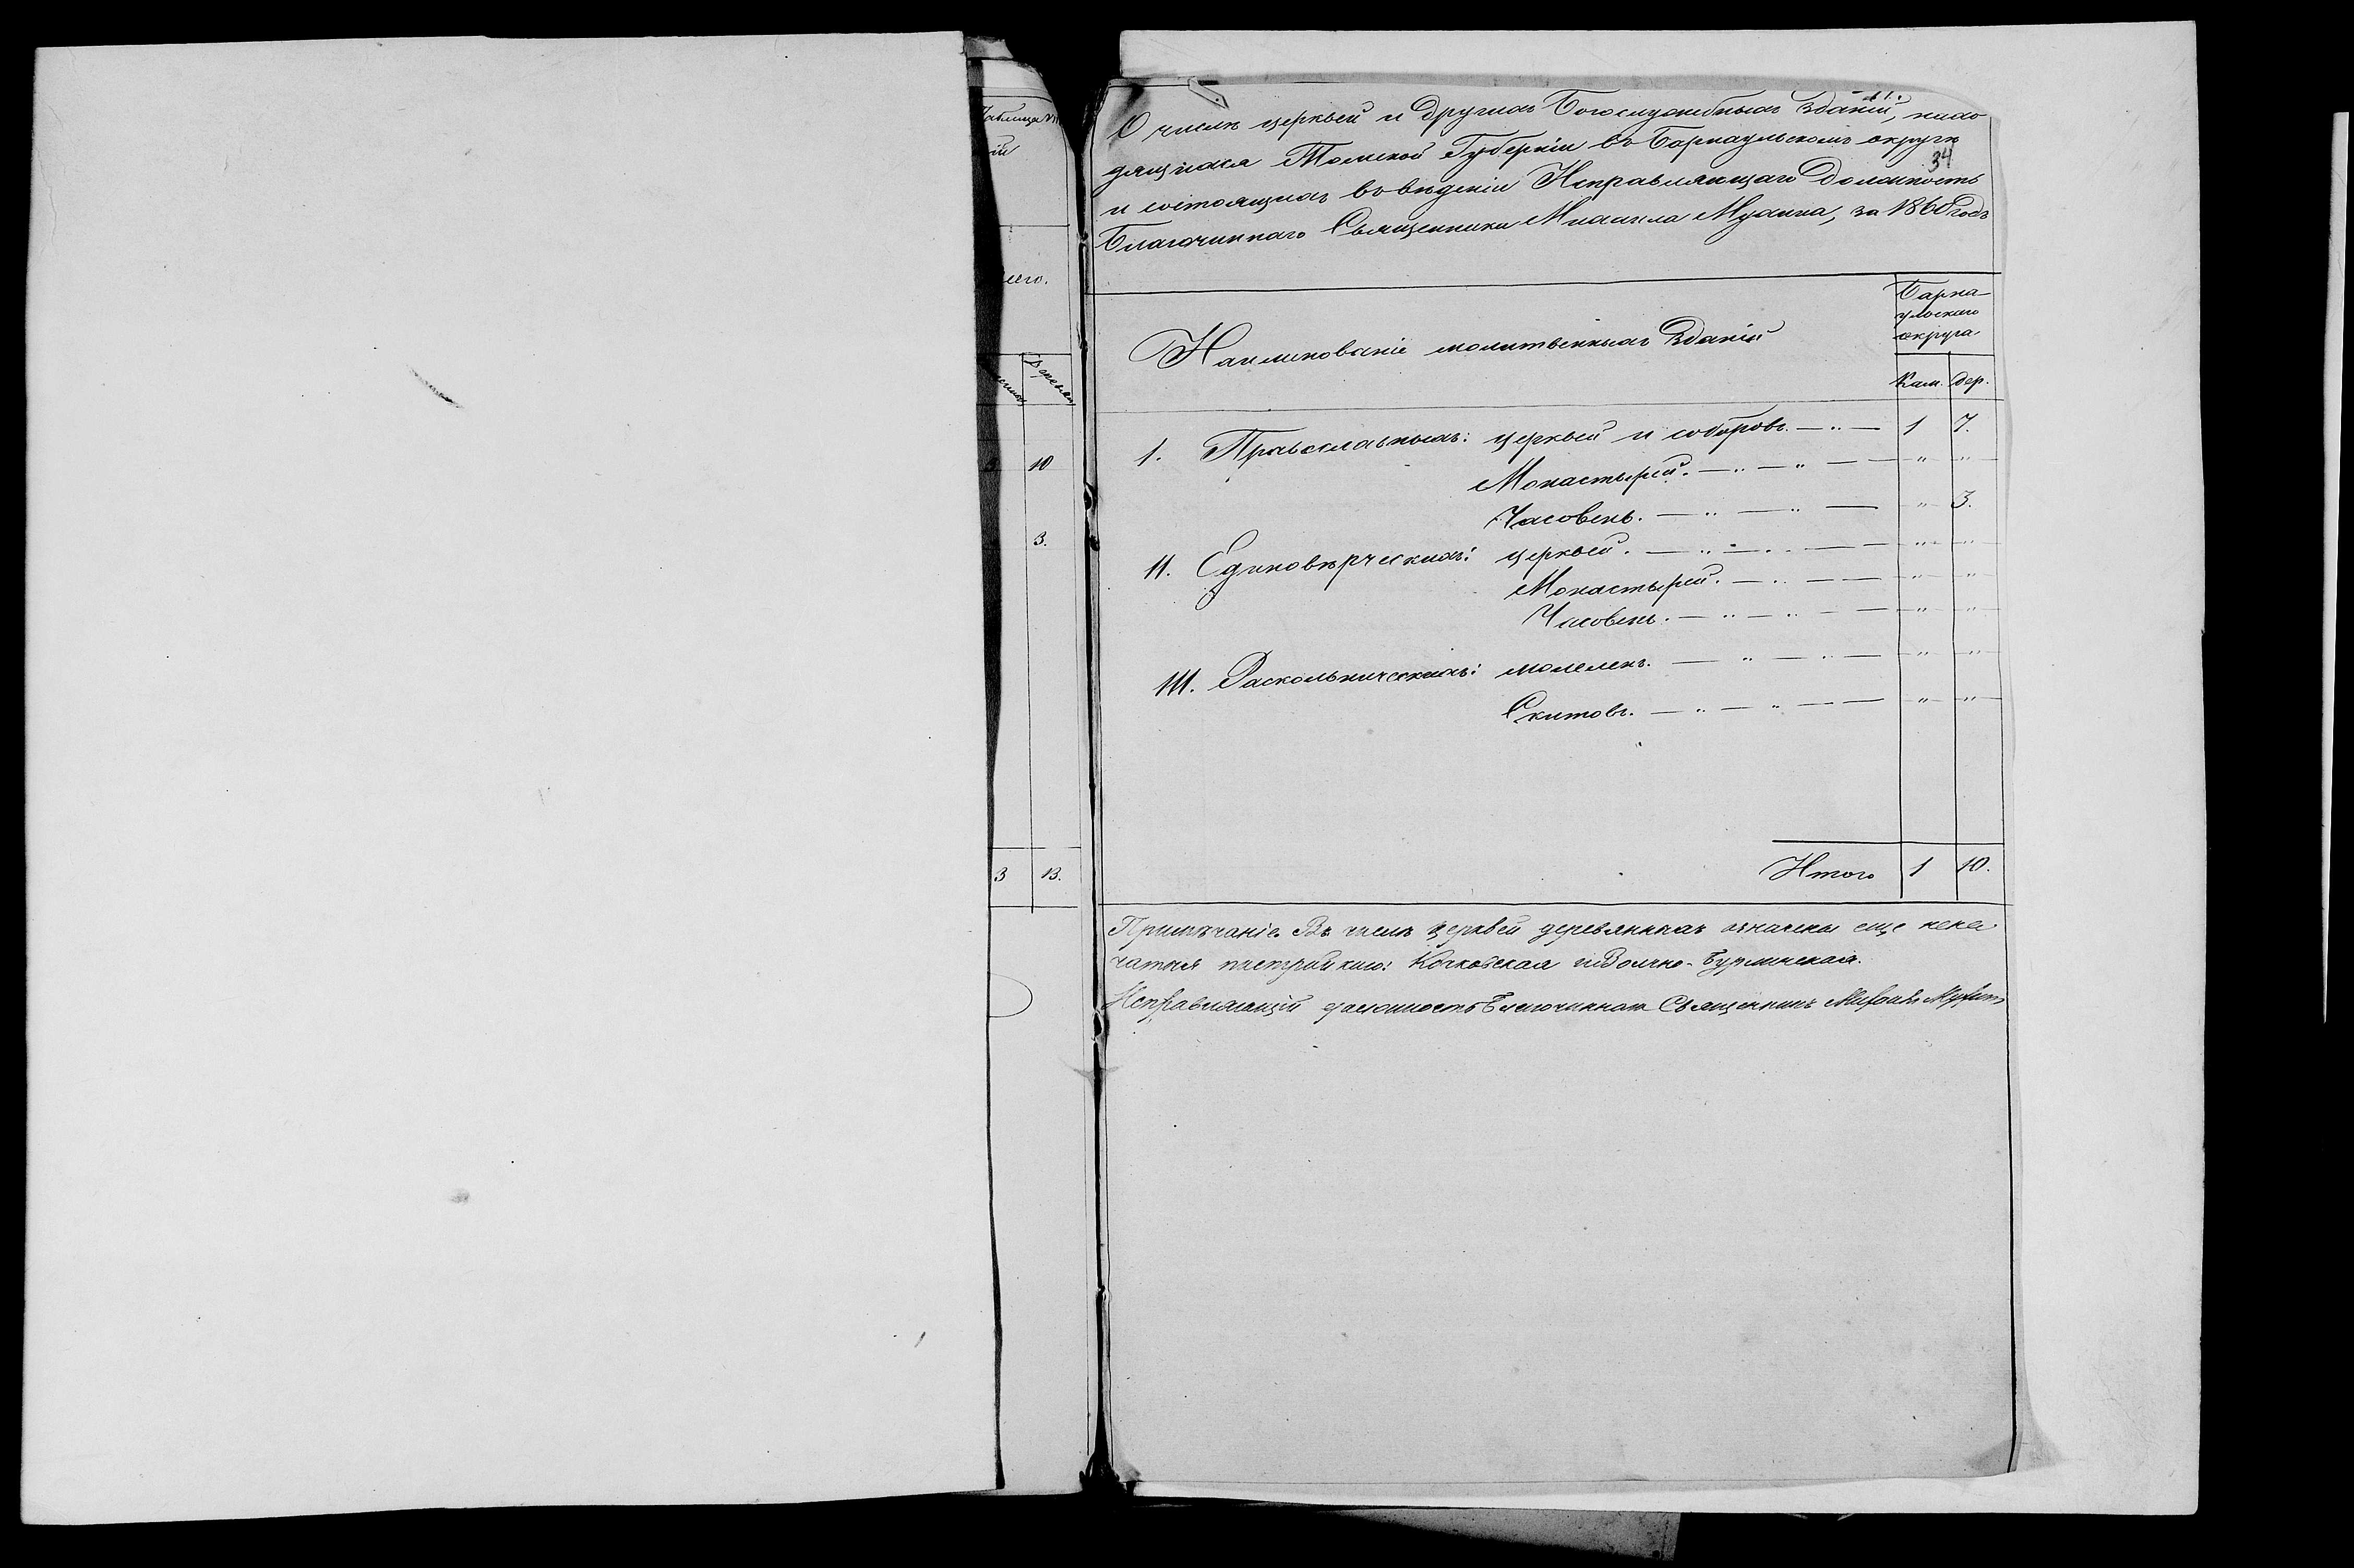 Таблица VII
ій
сего.
Деревян
10
3.
3 13.
11.
34
О числѣ церквей и другихъ Богослужебныхъ зданій, нахо
дящихся Томской Губерніи въ Барнаульскомъ округѣ
и состоящихъ въ вѣденіи Исправляющаго должность
Благочиннаго Священника Михаила Мухина, за 1860 годъ
Наименованіе молитвенныхъ зданій
Барна-
ульскаго
округа
Кам. Дер.
1. Православныхъ: церквей и соборовъ. — „ — 1 7.
Монастырей. — „ — „ — „ „
Часовень. — „ — „ — „ 3.
11. Единовѣрческихъ: церквей. — „ — „ — „ „
Монастырей. — „ — „ „
Часовень. — „ — „ — „ „
111. Раскольническихъ: молелень. — „ — „ — „ „
Скитовъ. — „ — „ — „ „
Итого 1 10.
Примѣчаніе. Въ числѣ церквей деревянныхъ означены еще нена
чатыя постройкою: Кочковская и Волчно-Бурлинская.
Исправляющій должность Благочиннаго Священникъ Михаилъ Мухинъ